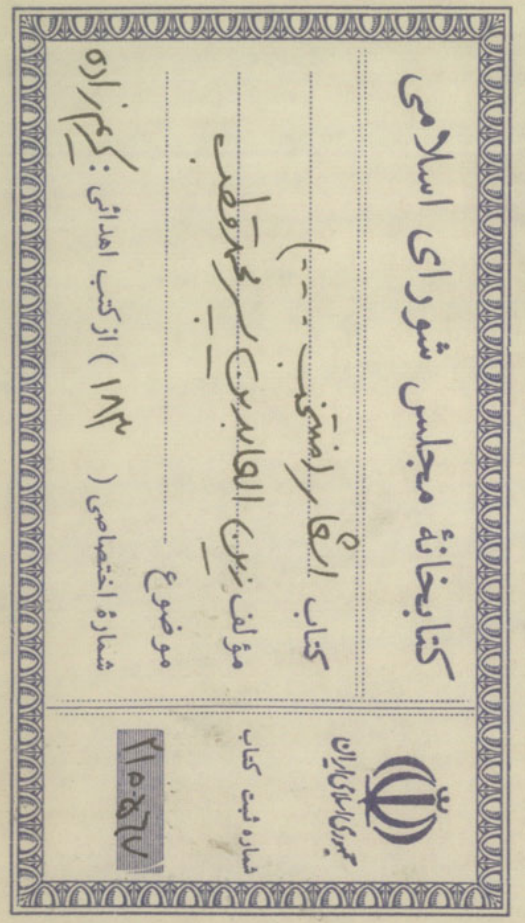 کتابخانهٔ مجلس شورای اسلامی
کتاب اشعار (منتخب ...)
مؤلف زین العابدین بن محمد قطب
موضوع
شمارهٔ اختصاصی ( ۱۸۳ ) از کتب اهدائی : کریم زاده
جمهوری اسلامی ایران
شماره ثبت کتاب